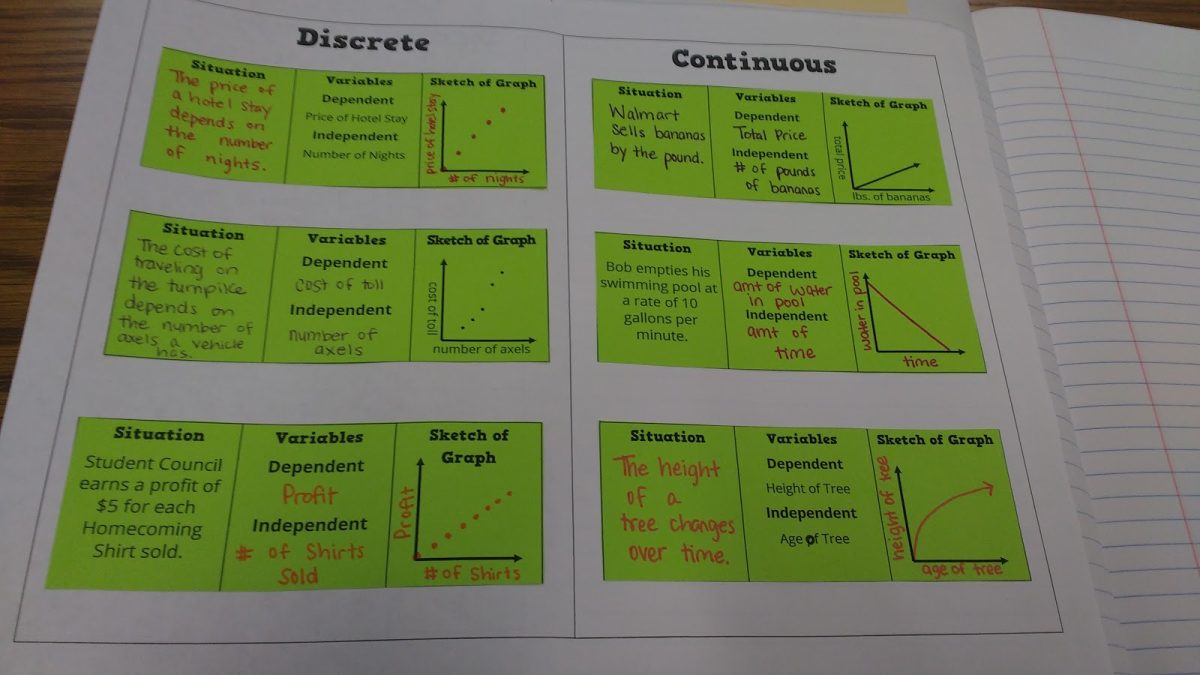 Discrete
Situation
The price of
a hotel stay
depends on
the number
of nights.
Variables
Dependent
Price of Hotel Stay
Independent
Number of Nights
Sketch of Graph
price of hotel stay
# of nights
Situation
The cost of
traveling on
the turnpike
depends on
the number of
axels a vehicle
has.
Variables
Dependent
cost of toll
Independent
number of
axels
Sketch of Graph
cost of toll
number of axels
Situation
Student Council
earns a profit of
$5 for each
Homecoming
Shirt sold.
Variables
Dependent
Profit
Independent
# of Shirts
Sold
Sketch of
Graph
Profit
# of Shirts
Continuous
Situation
Walmart
sells bananas
by the pound.
Variables
Dependent
Total Price
Independent
# of pounds
of bananas
Sketch of Graph
total price
lbs. of bananas
Situation
Bob empties his
swimming pool at
a rate of 10
gallons per
minute.
Variables
Dependent
amt of water
in pool
Independent
amt of
time
Sketch of Graph
water in pool
time
Situation
The height
of a
tree changes
over time.
Variables
Dependent
Height of Tree
Independent
Age of Tree
Sketch of Graph
height of tree
age of tree